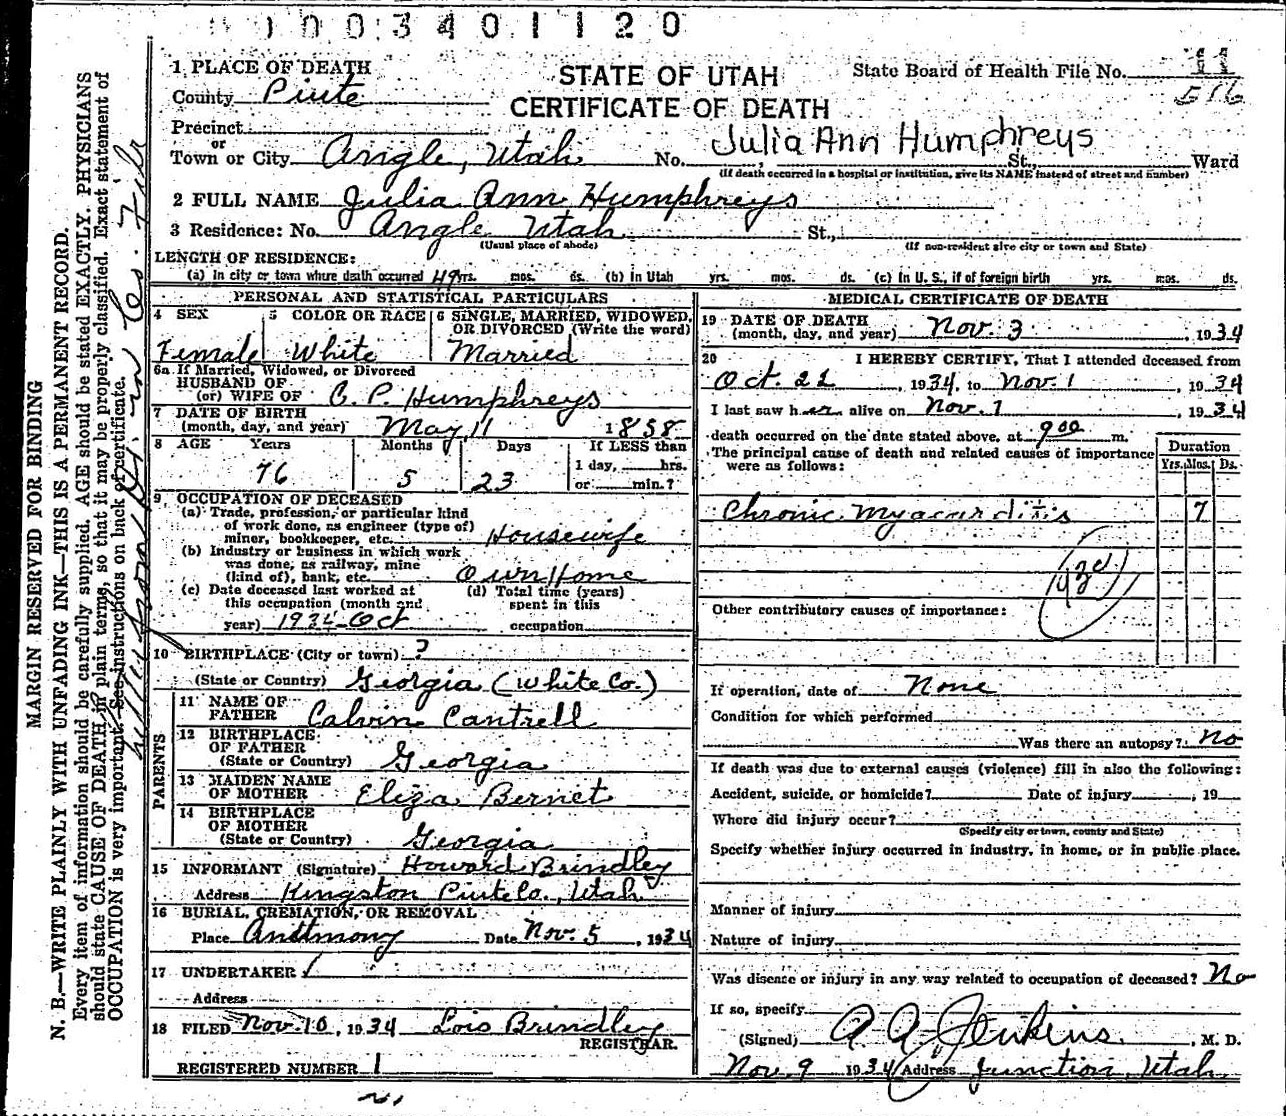 0003401120
1 PLACE OF DEATH
STATE OF UTAH
CERTIFICATE OF DEATH
State Board of Health File No. 11
516
County Piute
Precinct
or
Town or City Angle, Utah No. Julia Ann Humphreys St., Ward
(If death occurred in a hospital or institution, give its NAME instead of street and number)
2 FULL NAME Julia Ann Humphreys
3 Residence: No. Angle Utah St.,
(Usual place of abode) (If non-resident give city or town and State)
LENGTH OF RESIDENCE:
(a) In city or town where death occurred 49 yrs. mos. ds. (b) in Utah yrs. mos. ds. (c) in U. S., if of foreign birth yrs. mos. ds.
PERSONAL AND STATISTICAL PARTICULARS
4 SEX
Female
5 COLOR OR RACE
White
6 SINGLE, MARRIED, WIDOWED,
OR DIVORCED (Write the word)
Married
6a If Married, Widowed, or Divorced
HUSBAND OF
(or) WIFE OF C. P. Humphreys
7 DATE OF BIRTH
(month, day, and year) May 11 1858
8 AGE Years Months Days If LESS than
76 5 23 1 day, hrs.
or min.?
9 OCCUPATION OF DECEASED
(a) Trade, profession, or particular kind
of work done, as engineer (type of)
miner, bookkeeper, etc. Housewife
(b) Industry or business in which work
was done, as railway, mine
(kind of), bank, etc. Own Home
(c) Date deceased last worked at
this occupation (month and
year) 1934-Oct
(d) Total time (years)
spent in this
occupation
10 BIRTHPLACE (City or town) ?
(State or Country) Georgia (White Co.)
PARENTS
11 NAME OF
FATHER Calvin Cantrell
12 BIRTHPLACE
OF FATHER
(State or Country) Georgia
13 MAIDEN NAME
OF MOTHER Eliza Bernet
14 BIRTHPLACE
OF MOTHER
(State or Country) Georgia
15 INFORMANT (Signature) Howard Brindley
Address Kingston Piute Co., Utah
16 BURIAL, CREMATION, OR REMOVAL
Place Antimony Date Nov. 5, 1934
17 UNDERTAKER /
Address
18 FILED Nov 10, 1934 Lois Brindley
REGISTRAR.
REGISTERED NUMBER 1
MEDICAL CERTIFICATE OF DEATH
19 DATE OF DEATH
(month, day, and year) Nov. 3, 1934
20 I HEREBY CERTIFY, That I attended deceased from
Oct. 22, 1934, to Nov. 1, 1934
I last saw her alive on Nov. 1, 1934
death occurred on the date stated above, at 900 m.
The principal cause of death and related causes of importance
were as follows:
Duration
Yrs. Mos. Ds.
Chronic Myacarditis 7
Other contributory causes of importance:
If operation, date of None
Condition for which performed
Was there an autopsy? No
If death was due to external causes (violence) fill in also the following:
Accident, suicide, or homicide? Date of injury, 19
Where did injury occur?
(Specify city or town, county and State)
Specify whether injury occurred in industry, in home, or in public place.
Manner of injury
Nature of injury
Was disease or injury in any way related to occupation of deceased? No
If so, specify
(Signed) A. A. Jenkins, M. D.
Nov. 9 1934 Address Junction, Utah
MARGIN RESERVED FOR BINDING
N. B.—WRITE PLAINLY WITH UNFADING INK—THIS IS A PERMANENT RECORD.
Every item of information should be carefully supplied. AGE should be stated EXACTLY. PHYSICIANS
should state CAUSE OF DEATH in plain terms, so that it may be properly classified. Exact statement of
OCCUPATION is very important. See instructions on back of certificate.